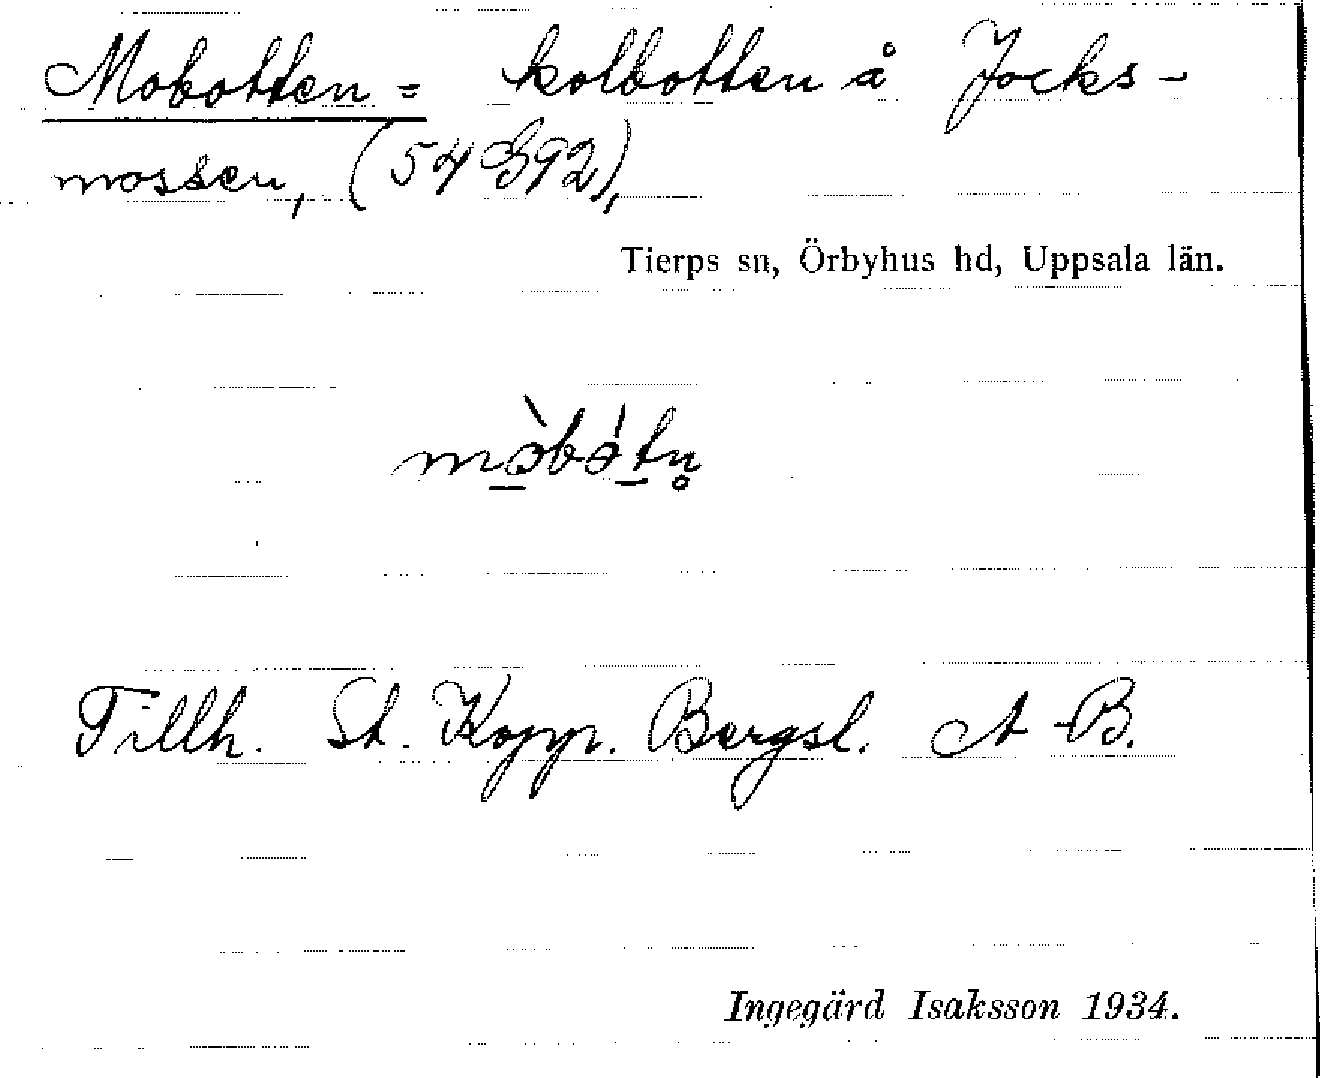 Mobotten = kolbotten å Jocks-
mossen, (54 G92),
Tierps sn, Örbyhus hd, Uppsala län.
Tillh. St. Kopp. Bergsl. A-B.
Ingegärd Isaksson 1934.